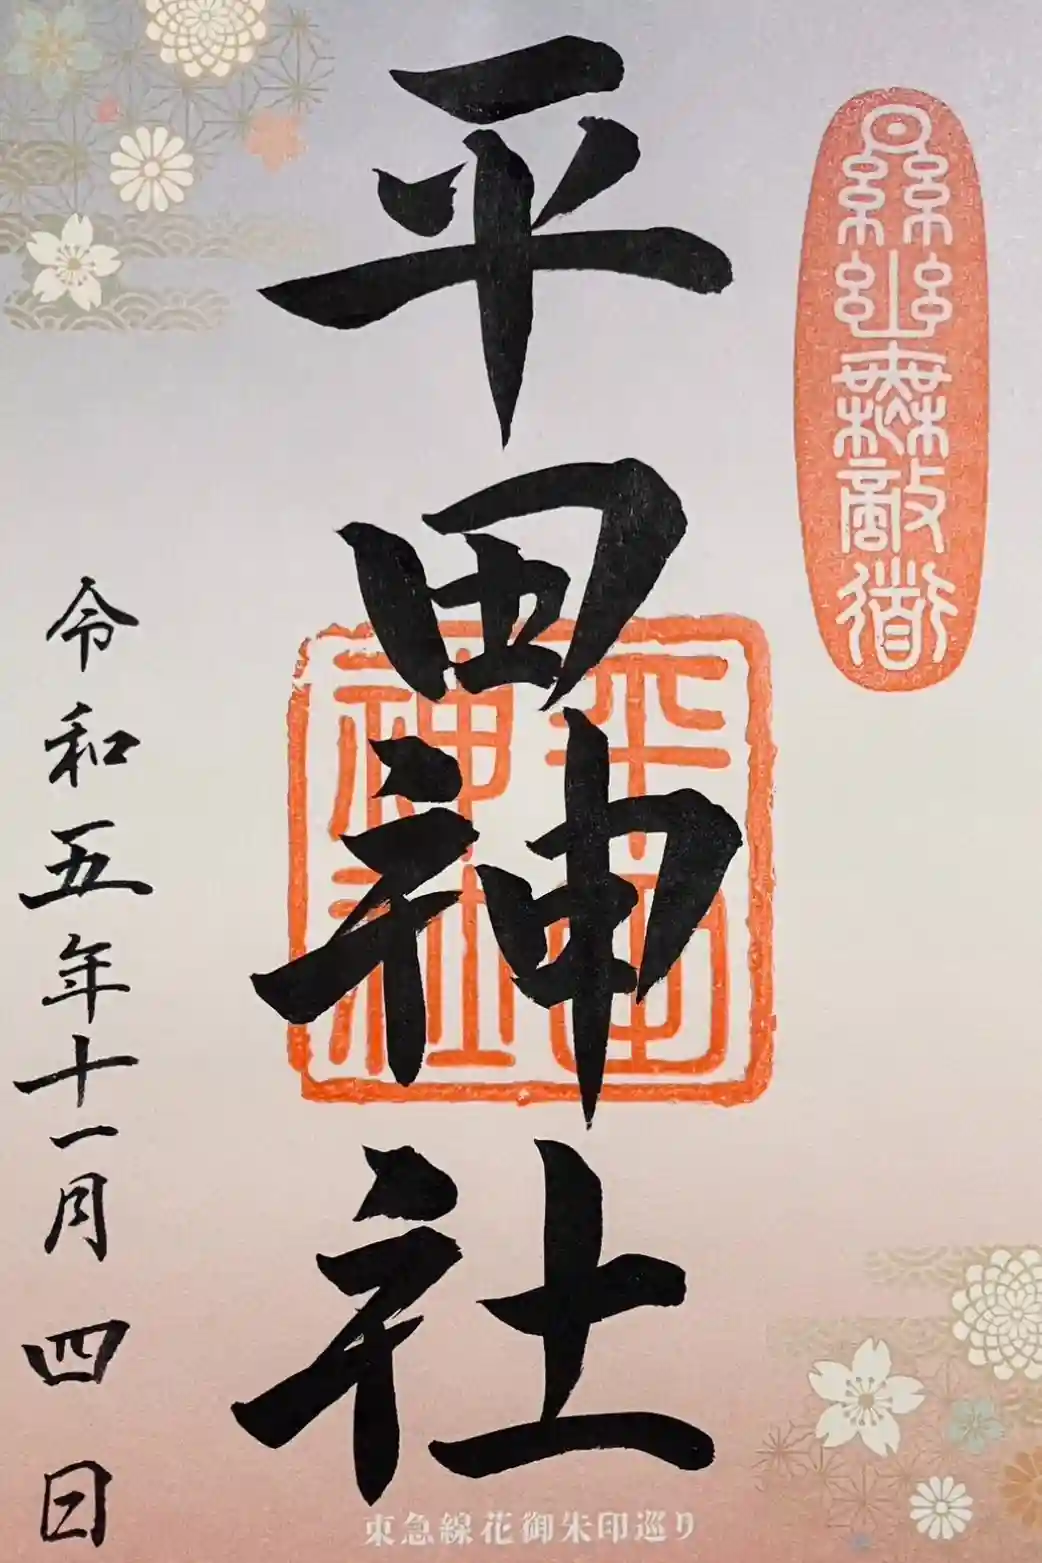 㬎幽無敵道
平田神社
平田
神社
令和五年十一月四日
東急線花御朱印巡り